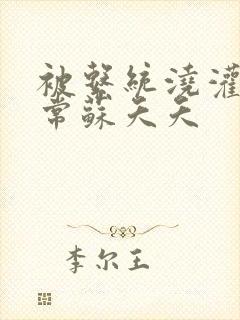 被繫統澆灌
常蘇天天
李尔王